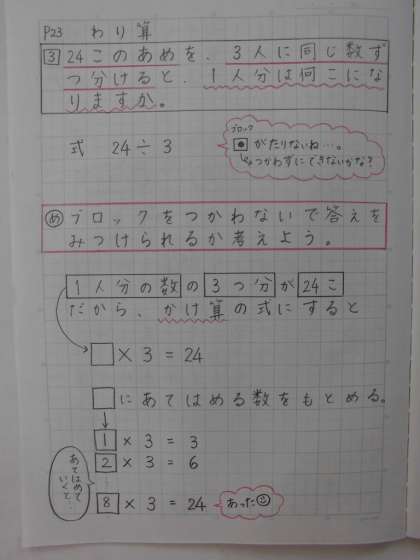 P23 わり算
3 24このあめを、3人に同じ数ず
つ分けると、1人分は何こにな
りますか。
式 24÷3
ブロック
がたりないね…。
つかわずにできないかな？
め ブロックをつかわないで答えを
みつけられるか考えよう。
1人分の数の3つ分が24こ
だから、かけ算の式にすると
□×3=24
□にあてはめる数をもとめる。
1×3=3
2×3=6
あてはめて
いくと…
8×3=24 あった